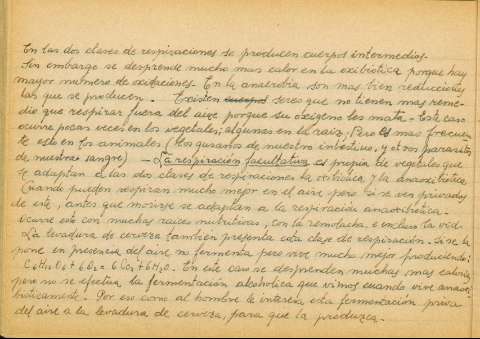 En las dos clases de respiraciones se producen cuerpos intermedios.
Sin embargo se desprende mucho mas calor en la oxibiótica, porque hay
mayor número de oxidaciones. En la anaerobia son mas bien reducciones
las que se producen. — Existen cuerpos seres que no tienen mas reme-
dio que respirar fuera del aire porque su oxígeno les mata. Este caso
ocurre pocas veces en los vegetales; algunas en la raiz. Pero es mas frecuen-
te este en los animales (los gusanos de nuestro intestino, y otros parasitos
de nuestra sangre) — La respiración facultativa es propia de vegetales que
se adaptan a las dos clases de respiraciones la oxibiótica y la anaoxibiótica
Cuando pueden respiran mucho mejor en el aire pero si se ven privados
de este, antes que morirse se adaptan a la respiración anaoxibiótica.
Ocurre esto con muchas raices nutritivas, con la remolacha, e incluso la vid.
La levadura de cerveza también presenta esta clase de respiración. Si se la
pone en presencia del aire no fermenta pero vive mucho mejor produciendo:
C6H12O6 + 6O2 = 6CO2 + 6H2O. En este caso se desprenden muchas mas calorias,
pero no se efectúa la fermentación alcoholica que vimos cuando vive anaoxi-
bióticamente. Por eso como al hombre le interesa esta fermentación priva
del aire a la levadura de cerveza, para que la produzca.